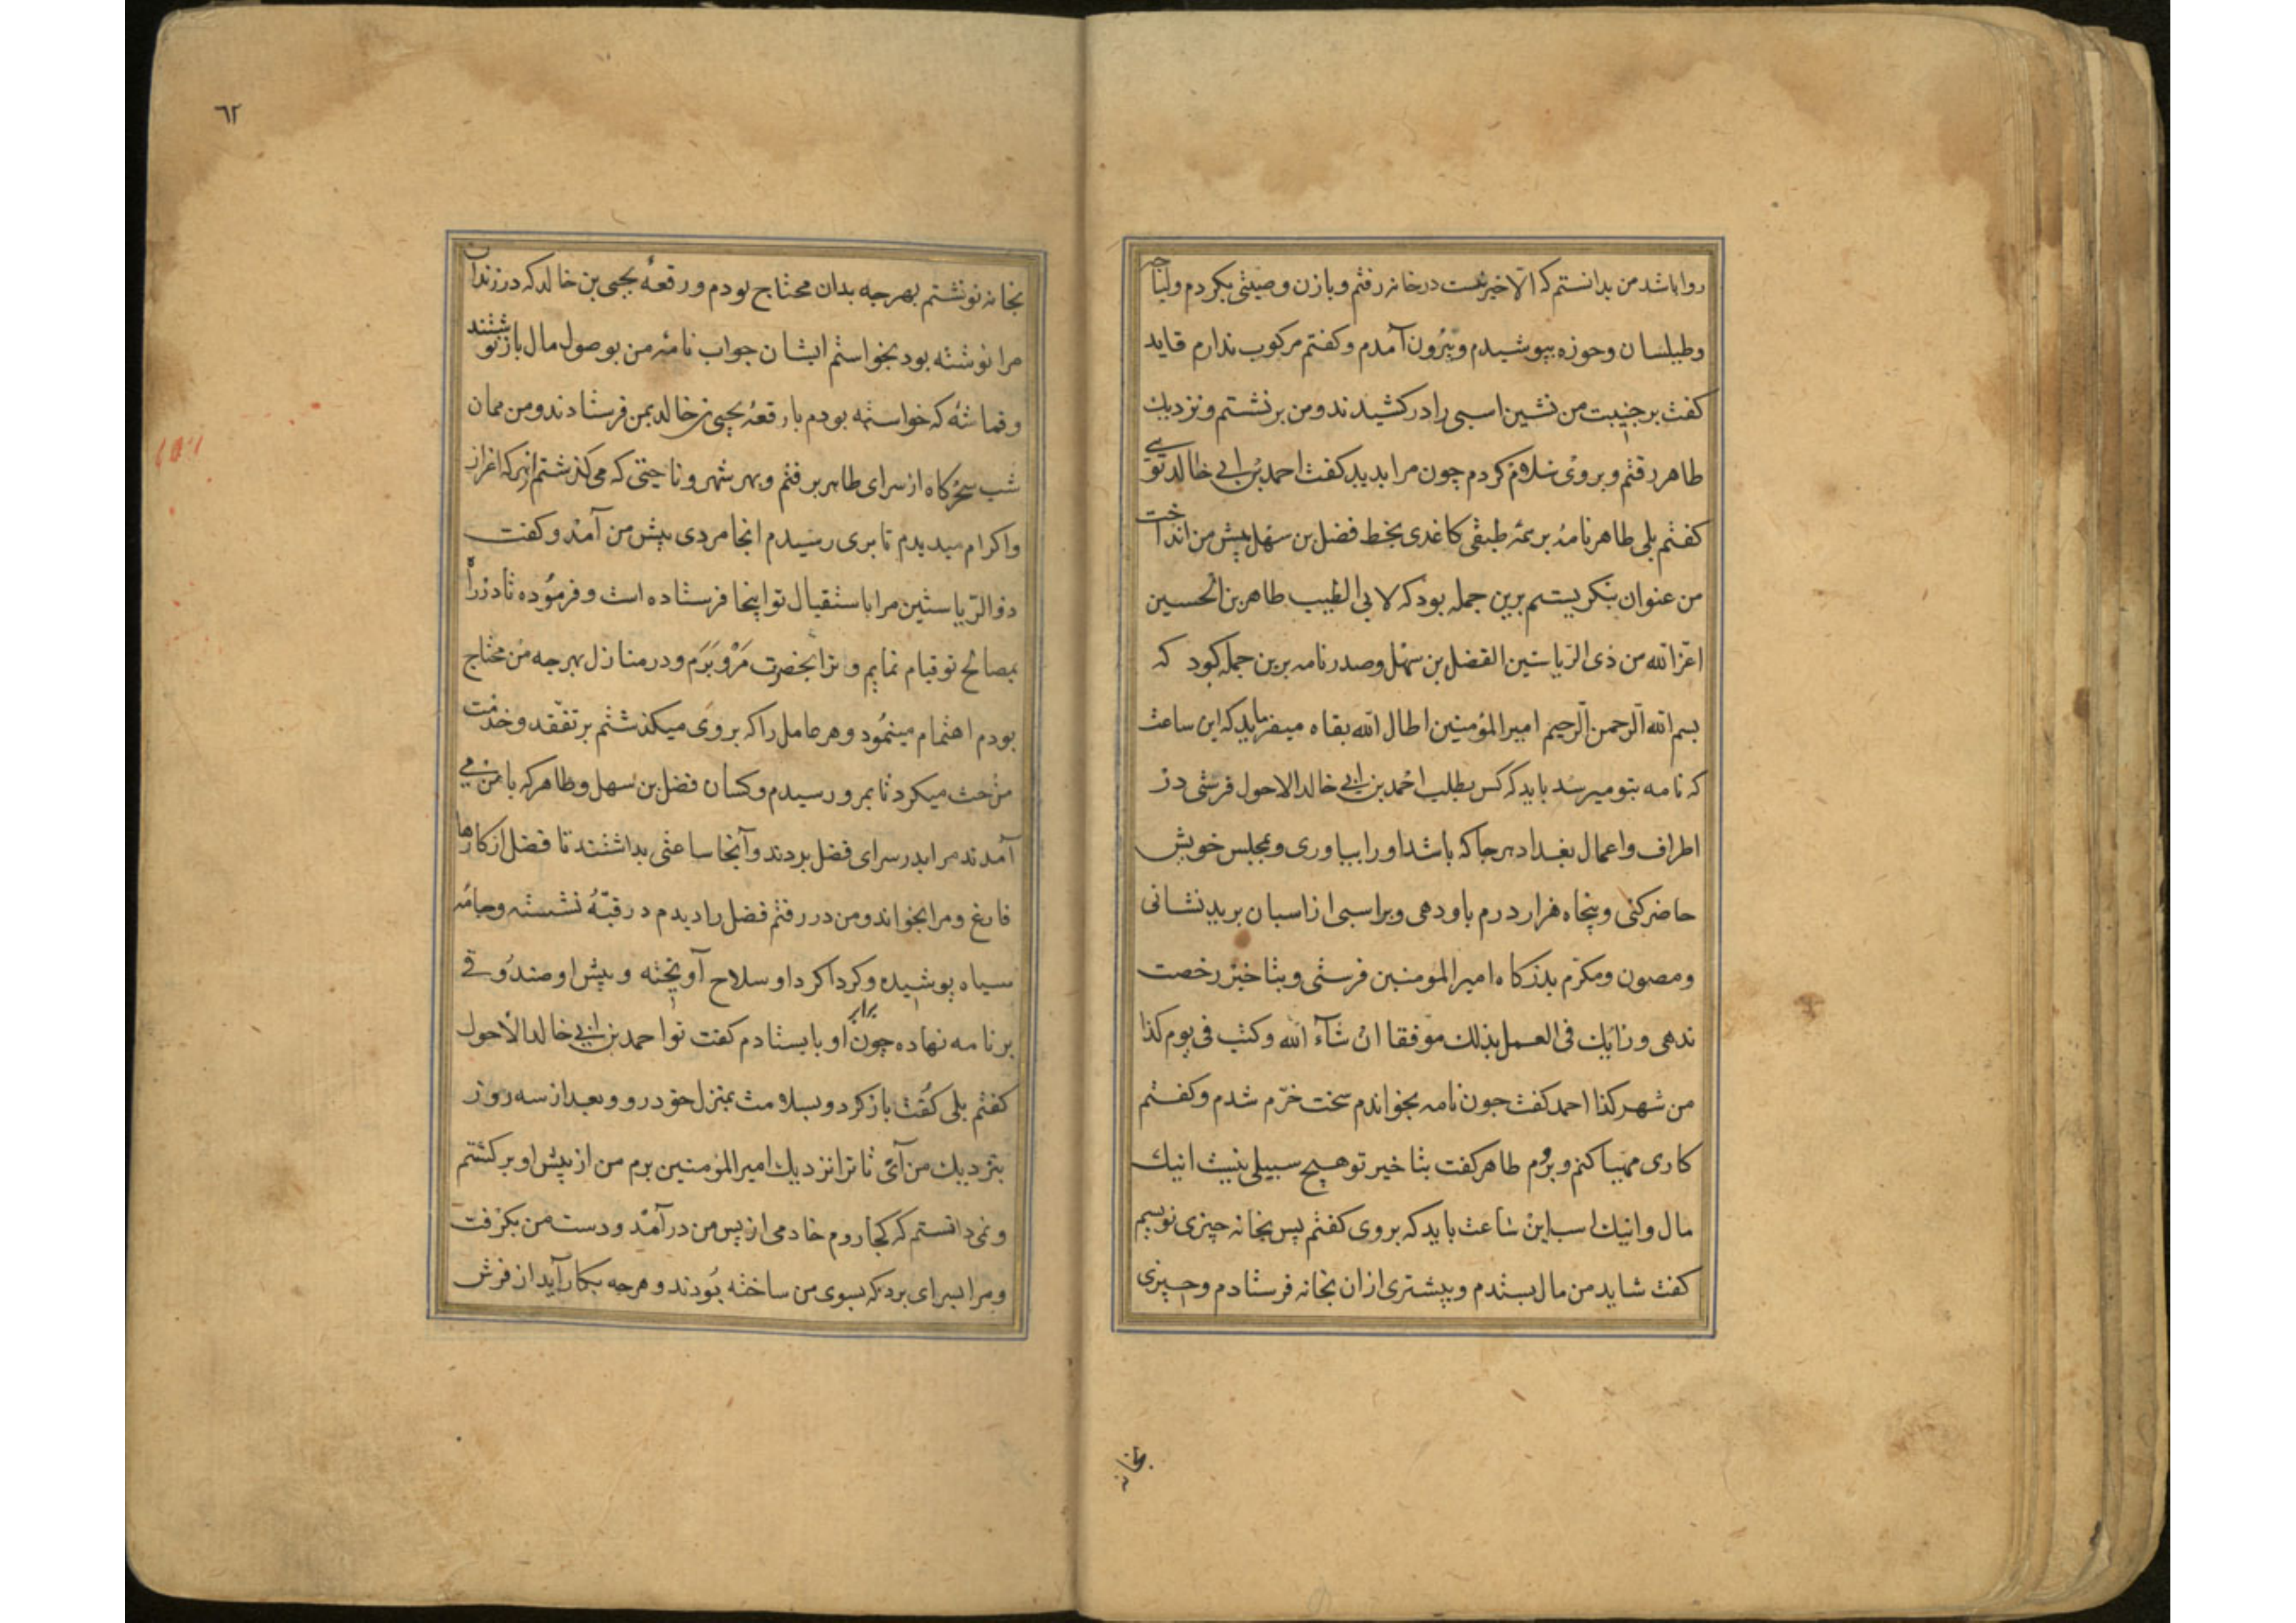 روا باشد من بدانستم که الّا خیر نیست در خانه رفتم و با زن وصیتی بکردم ولباچه
وطیلسان وحوزه بپوشیدم وبیرون آمدم وکفتم مرکوب ندارم قاید
کفت بر جنیبت من نشین اسبی را در کشیدند ومن برنشستم ونزدیك
طاهر رفتم وبروی سلام کردم چون مرا بدید کفت احمد بن ابی خالد توی
کفتم بلی طاهر نامهٔ بر نیمهٔ طبقی کاغدی بخط فضل بن سهل پیش من انداخت
من عنوان بنکریستم برین جمله بود که لابی الطیب طاهر بن الحسین
اعزّالله من ذی الرّیاستین الفضل بن سهل وصدر نامه برین جمله بود که
بسم الله الرحمن الرّحیم امیرالمؤمنین اطال الله بقاه میفرماید که این ساعت
که نامه بتو میرسد باید که کس بطلب احمد بن ابی خالد الاحول فرستی در
اطراف واعمال بغداد هر جا که باشد او را بیاوری وبمجلس خویش
حاضر کنی وپنجاه هزار درم باو دهی وبر اسبی از اسبان برید نشانی
ومصون ومکرّم بدرکاه امیرالمومنین فرستی وبتاخیر رخصت
ندهی ورایك فی العمل بذلك موفقا ان شآء الله وکتب فی یوم کذا
من شهر کذا احمد کفت جون نامه بخواندم سخت خرّم شدم وکفتم
کاری مهیا کنم وبروم طاهر کفت بتاخیر تو هیچ سبیلی نیست اینك
مال واینك اسب این ساعت باید که بروی کفتم پس بخانه چیزی نویسم
کفت شاید من مال بستدم وبیشتری ازان بخانه فرستادم وچیزی
بخانه
٦٢
بخانه نوشتم بهرجه بدان محتاج بودم ورقعهٔ یحیی بن خالد که در زندان
مرا نوشته بود بخواستم ایشان جواب نامهٔ من بوصول مال باز نوشتند
وقماشه که خواسته بودم با رقعهٔ یحیی بن خالد بمن فرستادند ومن همان
شب سحرکاه از سرای طاهر برفتم وبهر شهر وناحیتی که می کذشتم از هرکه اعزاز
واکرام میدیدم تا بری رسیدم انجا مردی پیش من آمد وکفت
ذوالرّیاستین مرا باستقبال تو اینجا فرستاده است وفرموده تا در راه
بمصالح تو قیام نمایم وترا بحضرت مَرْو بَرَم ودر منازل بهرجه من محتاج
بودم اهتمام مینمود وهر عامل را که بروی میکذشتم بر تفقد وخدمت
من حث میکرد تا بمرو رسیدم وکسان فضل بن سهل وطاهر که با من می
آمدند مرا بدر سرای فضل بردند وآنجا ساعتی بداشتند تا فضل از کارها
فارغ ومرا بخواند ومن در رفتم فضل را دیدم در قبّهٔ نشسته وجامهٔ
سیاه پوشیده وکرداکرد او سلاح آویخته وپیش او صندوقی
بر نامه نهاده چون برابر او بایستادم کفت توا حمد بن ابی خالد الأحول
کفتم بلی کفت باز کرد وبسلامت بمنزل خود رو وبعد از سه روز
بنزدیك من آئی تا ترا نزدیك امیرالمؤمنین برم من از پیش او برکشتم
ونمی دانستم که کجا روم خادمی از پس من درآمد ودست من بکرفت
ومرا بسرای برد که بسوی من ساخته بودند وهرجه بکار آید از فرش